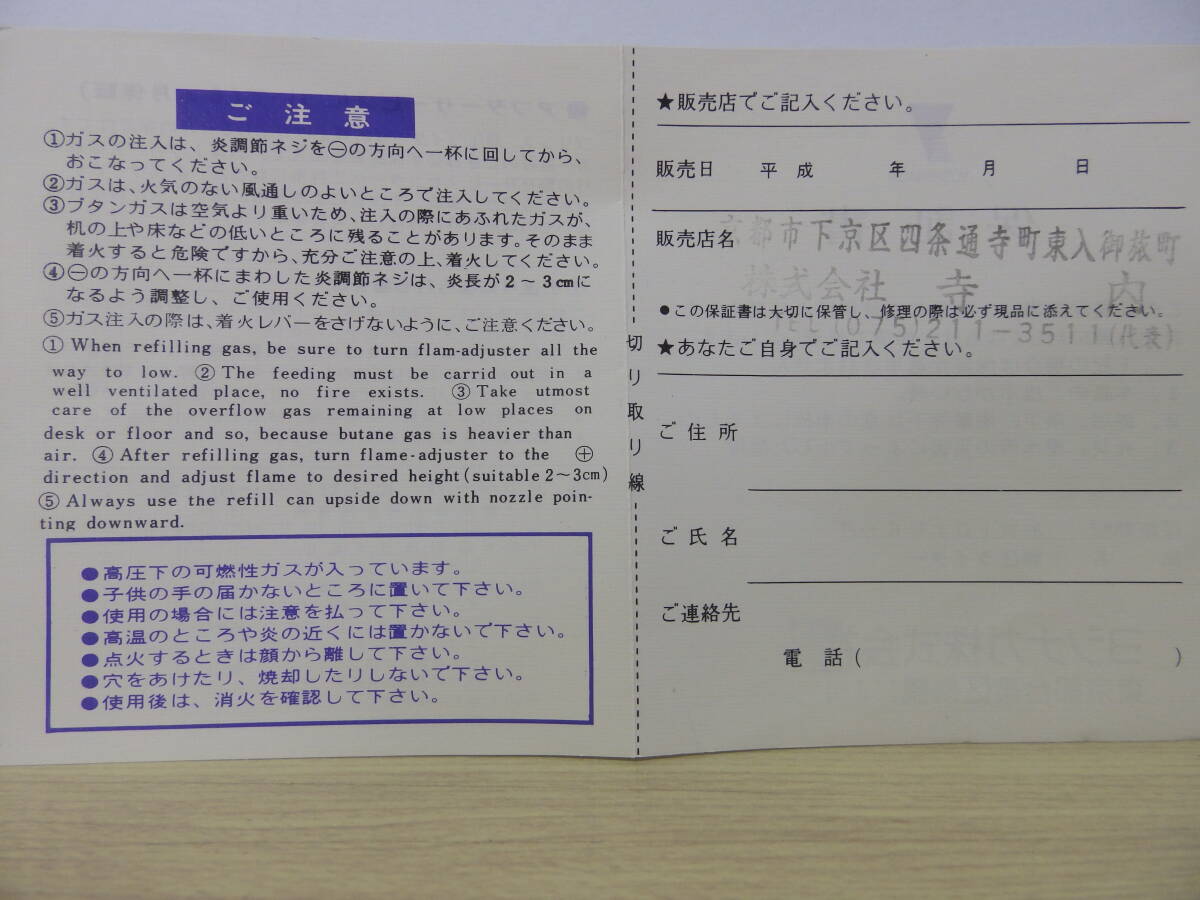 ご注意
①ガスの注入は、炎調節ネジを㊀の方向へ一杯に回してから、
おこなってください。
②ガスは、火気のない風通しのよいところで注入してください。
③ブタンガスは空気より重いため、注入の際にあふれたガスが、
机の上や床などの低いところに残ることがあります。そのまま
着火すると危険ですから、充分ご注意の上、着火してください。
④㊀の方向へ一杯にまわした炎調節ネジは、炎長が2～3cmに
なるよう調整し、ご使用ください。
⑤ガス注入の際は、着火レバーをさげないように、ご注意ください。
① When refilling gas, be sure to turn flam-adjuster all the
way to low. ② The feeding must be carrid out in a
well ventilated place, no fire exists. ③ Take utmost
care of the overflow gas remaining at low places on
desk or floor and so, because butane gas is heavier than
air. ④ After refilling gas, turn flame-adjuster to the ⊕
direction and adjust flame to desired height (suitable 2～3cm)
⑤ Always use the refill can upside down with nozzle poin-
ting downward.
●高圧下の可燃性ガスが入っています。
●子供の手の届かないところに置いて下さい。
●使用の場合には注意を払って下さい。
●高温のところや炎の近くには置かないで下さい。
●点火するときは顔から離して下さい。
●穴をあけたり、焼却したりしないで下さい。
●使用後は、消火を確認して下さい。
切り取り線
★販売店でご記入ください。
販売日 平成 年 月 日
販売店名
京都市下京区四条通寺町東入御旅町
株式会社 寺内
●この保証書は大切に保管し、修理の際は必ず現品に添えてください。
TEL(075)211-3511(代表)
★あなたご自身でご記入ください。
ご住所
ご氏名
ご連絡先
電話( )